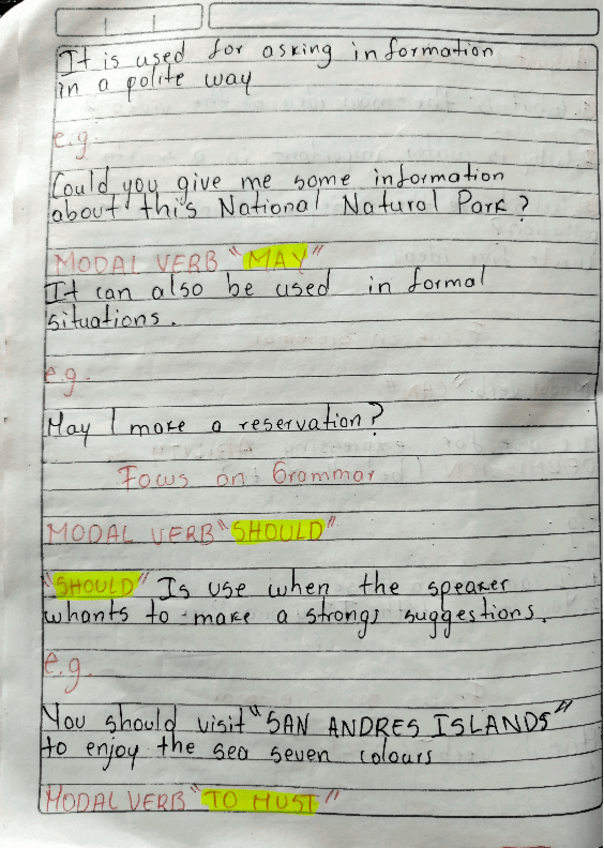 It is used for asking information
in a polite way
e.g.
Could you give me some information
about this National Natural Park?
MODAL VERB "MAY"
It can also be used in formal
situations.
e.g.
May I make a reservation?
Focus on: Grammar
MODAL VERB "SHOULD"
"SHOULD" Is use when the speaker
whants to make a strongs suggestions.
e.g.
You should visit "SAN ANDRES ISLANDS"
to enjoy the sea seven colours
MODAL VERB "TO MUST"